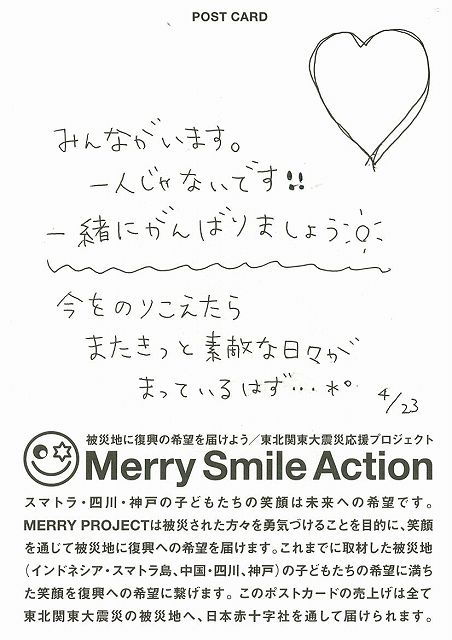 POST CARD
みんながいます。
一人じゃないです!!
一緒にがんばりましょう
今をのりこえたら
またきっと素敵な日々が
まっているはず…
4/23
被災地に復興の希望を届けよう／東北関東大震災応援プロジェクト
Merry Smile Action
スマトラ・四川・神戸の子どもたちの笑顔は未来への希望です。
MERRY PROJECTは被災された方々を勇気づけることを目的に、笑顔
を通じて被災地に復興への希望を届けます。これまでに取材した被災地
（インドネシア・スマトラ島、中国・四川、神戸）の子どもたちの希望に満ち
た笑顔を復興への希望に繋げます。このポストカードの売上げは全て
東北関東大震災の被災地へ、日本赤十字社を通して届けられます。